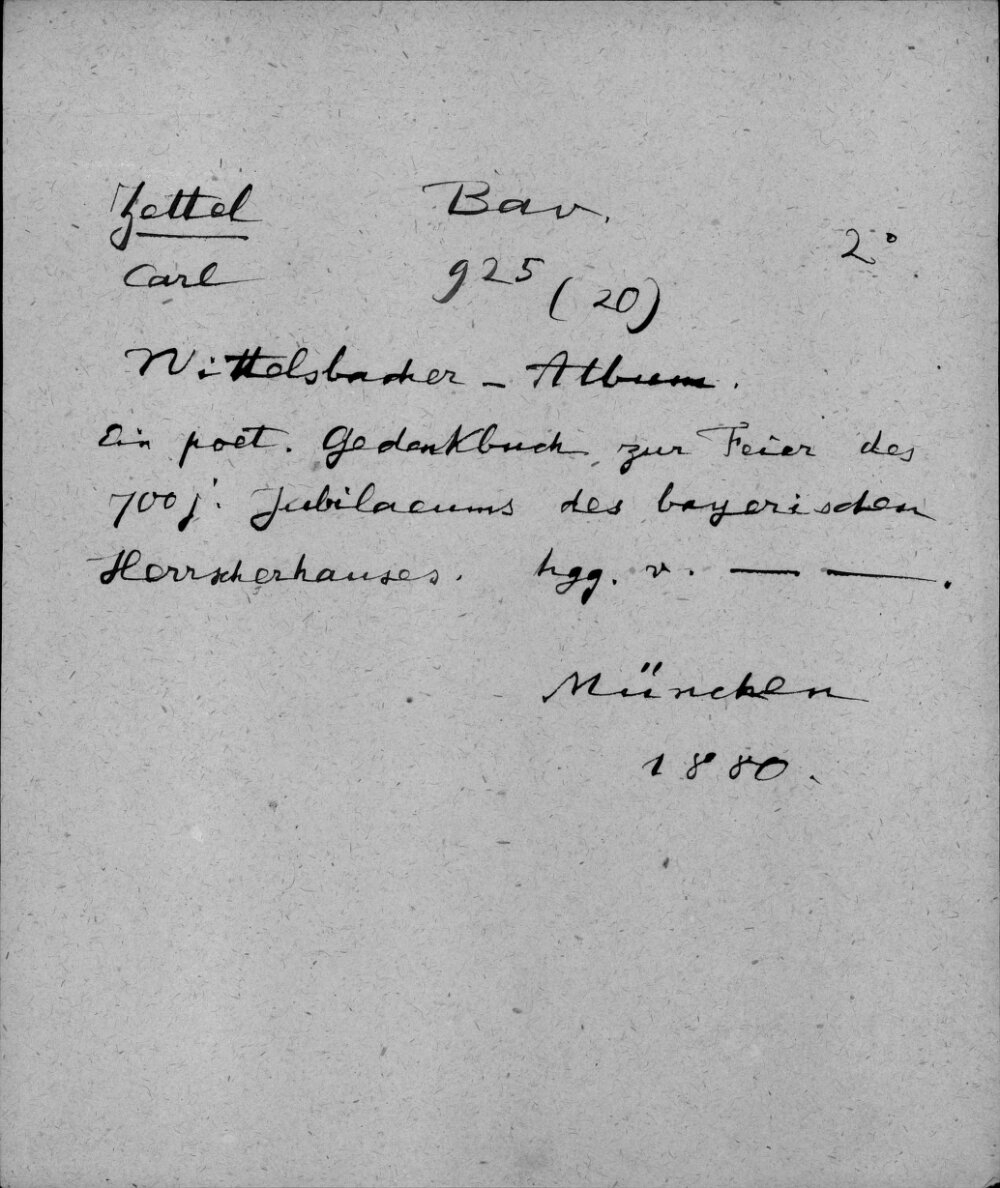 Zettel Bav. 2°
Carl 925 (20)
Wittelsbacher - Album.
Ein poet. Gedenkbuch zur Feier des
700j. Jubilaeums des bayerischen
Herrscherhauses. hgg. v. — —.
München
1880.